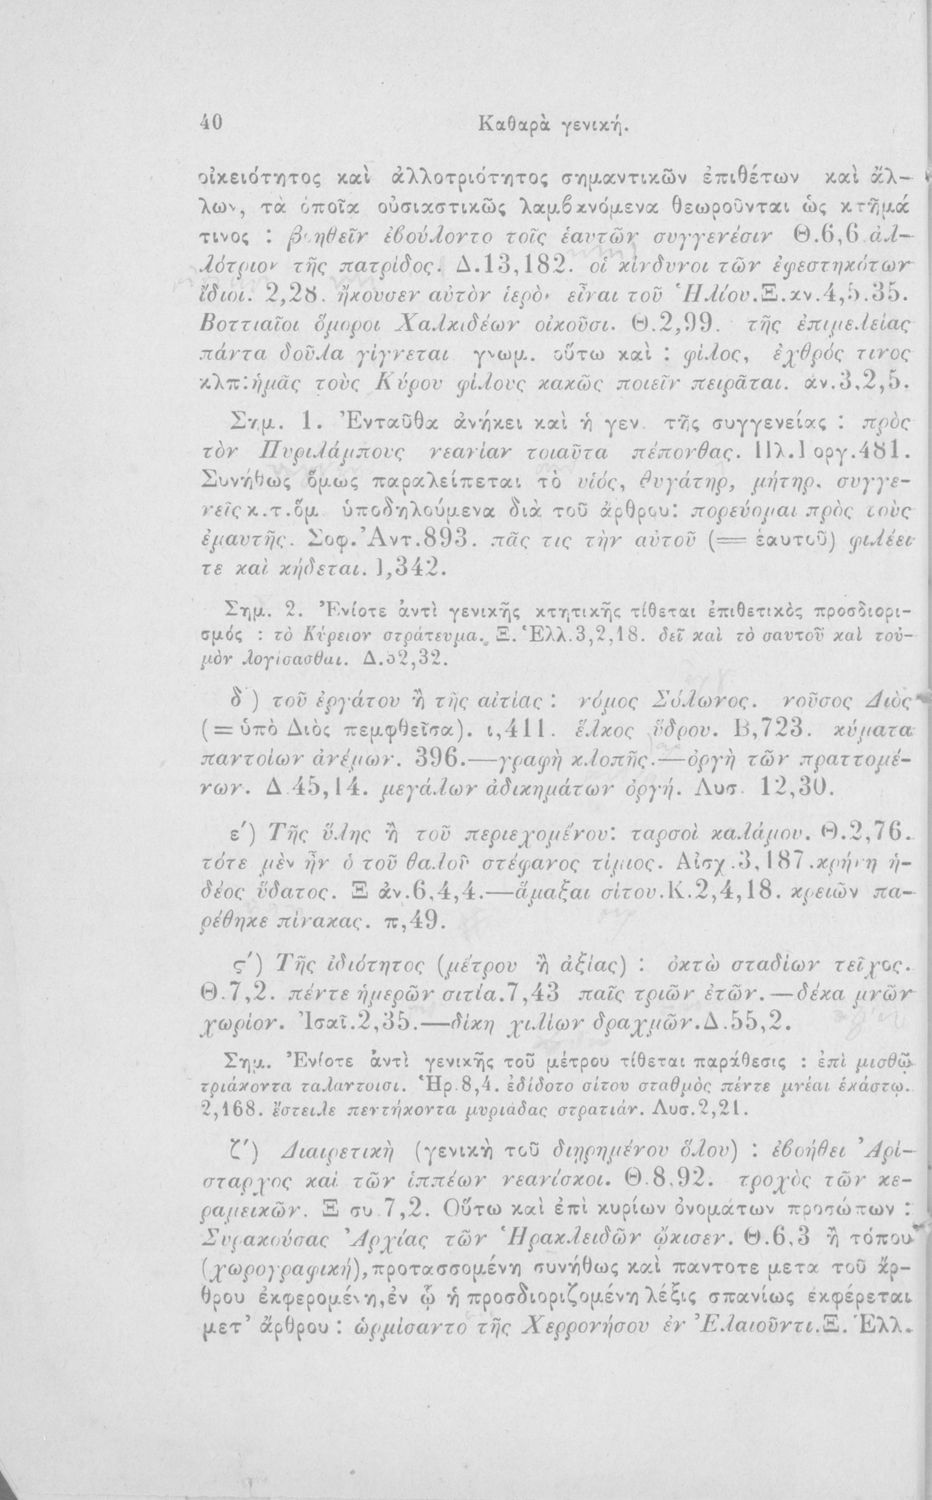 40 Καθαρὰ γενική.
οἰκειότητος καὶ ἀλλοτριότητος σημαντικῶν ἐπιθέτων καὶ ἄλ-
λων, τὰ ὁποῖα οὐσιαστικῶς λαμβανόμενα θεωροῦνται ὡς κτῆμά
τινος : βοηθεῖν ἐβούλοντο τοῖς ἑαυτῶν συγγενέσιν Θ.6,6 ἀλ-
λότριον τῆς πατρίδος. Δ.13,182. οἱ κίνδυνοι τῶν ἐφεστηκότων
ἴδιοι. 2,28. ἤκουσεν αὐτὸν ἱερὸν εἶναι τοῦ Ἡλίου.Ξ.κν.4,5.35.
Βοττιαῖοι ὅμοροι Χαλκιδέων οἰκοῦσι. Θ.2,99. τῆς ἐπιμελείας
πάντα δοῦλα γίγνεται γνωμ. οὕτω καὶ : φίλος, ἐχθρός τινος
κλπ: ἡμᾶς τοὺς Κύρου φίλους κακῶς ποιεῖν πειρᾶται. ἀν.3,2,5.
Σημ. 1. Ἐνταῦθα ἀνήκει καὶ ἡ γεν. τῆς συγγενείας : πρὸς
τὸν Πυριλάμπους νεανίαν τοιαῦτα πέπονθας. Πλ.Γοργ.481.
Συνήθως ὅμως παραλείπεται τὸ υἱός, θυγάτηρ, μήτηρ, συγγε-
νεῖς κ.τ.ὅμ. ὑποδηλούμενα διὰ τοῦ ἄρθρου: πορεύομαι πρὸς τοὺς
ἐμαυτῆς. Σοφ.Ἀντ.893. πᾶς τις τὴν αὑτοῦ (= ἑαυτοῦ) φιλέει
τε καὶ κήδεται. Ι,342.
Σημ. 2. Ἐνίοτε ἀντὶ γενικῆς κτητικῆς τίθεται ἐπιθετικὸς προσδιορι-
σμός : τὸ Κύρειον στράτευμα. Ξ.Ἑλλ.3,2,18. δεῖ καὶ τὸ σαυτοῦ καὶ τοὐ-
μὸν λογίσασθαι. Δ.52,32.
δ') τοῦ ἐργάτου ἢ τῆς αἰτίας : νόμος Σόλωνος. νοῦσος Διὸς
(= ὑπὸ Διὸς πεμφθεῖσα). ι,411. ἕλκος ὕδρου. Β,723. κύματα
παντοίων ἀνέμων. 396.—γραφὴ κλοπῆς.—ὀργὴ τῶν πραττομέ-
νων. Δ.45,14. μεγάλων ἀδικημάτων ὀργή. Λυσ. 12,30.
ε') Τῆς ὕλης ἢ τοῦ περιεχομένου: ταρσοὶ καλάμου. Θ.2,76.
τότε μὲν ἦν ὁ τοῦ θαλοῦ στέφανος τίμιος. Αἰσχ.3,187.κρήνη ἡ-
δέος ὕδατος. Ξ ἀν.6,4,4.—ἅμαξαι σίτου.Κ.2,4,18. κρειῶν πα-
ρέθηκε πίνακας. π,49.
ς') Τῆς ἰδιότητος (μέτρου ἢ ἀξίας) : ὀκτὼ σταδίων τεῖχος.
Θ.7,2. πέντε ἡμερῶν σιτία.7,43 παῖς τριῶν ἐτῶν.—δέκα μνῶν
χωρίον. Ἰσαῖ.2,35.—δίκη χιλίων δραχμῶν.Δ.55,2.
Σημ. Ἐνίοτε ἀντὶ γενικῆς τοῦ μέτρου τίθεται παράθεσις : ἐπὶ μισθῷ
τριάκοντα ταλάντοισι. Ἡρ.8,4. ἐδίδοτο σίτου σταθμὸς πέντε μνέαι ἑκάστῳ.
2,168. ἔστειλε πεντήκοντα μυριάδας στρατιάν. Λυσ.2,21.
ζ') Διαιρετικὴ (γενικὴ τοῦ διῃρημένου ὅλου) : ἐβοήθει Ἀρί-
σταρχος καὶ τῶν ἱππέων νεανίσκοι. Θ.8,92. τροχὸς τῶν κε-
ραμεικῶν. Ξ συ.7,2. Οὕτω καὶ ἐπὶ κυρίων ὀνομάτων προσώπων :
Συρακούσας Ἀρχίας τῶν Ἡρακλειδῶν ᾤκισεν. Θ.6,3 ἢ τόπου
(χωρογραφική), προτασσομένη συνήθως καὶ πάντοτε μετὰ τοῦ ἄρ-
θρου ἐκφερομένη, ἐν ᾧ ἡ προσδιοριζομένη λέξις σπανίως ἐκφέρεται
μετ' ἄρθρου : ὡρμίσαντο τῆς Χερρονήσου ἐν Ἐλαιοῦντι.Ξ. Ἑλλ.